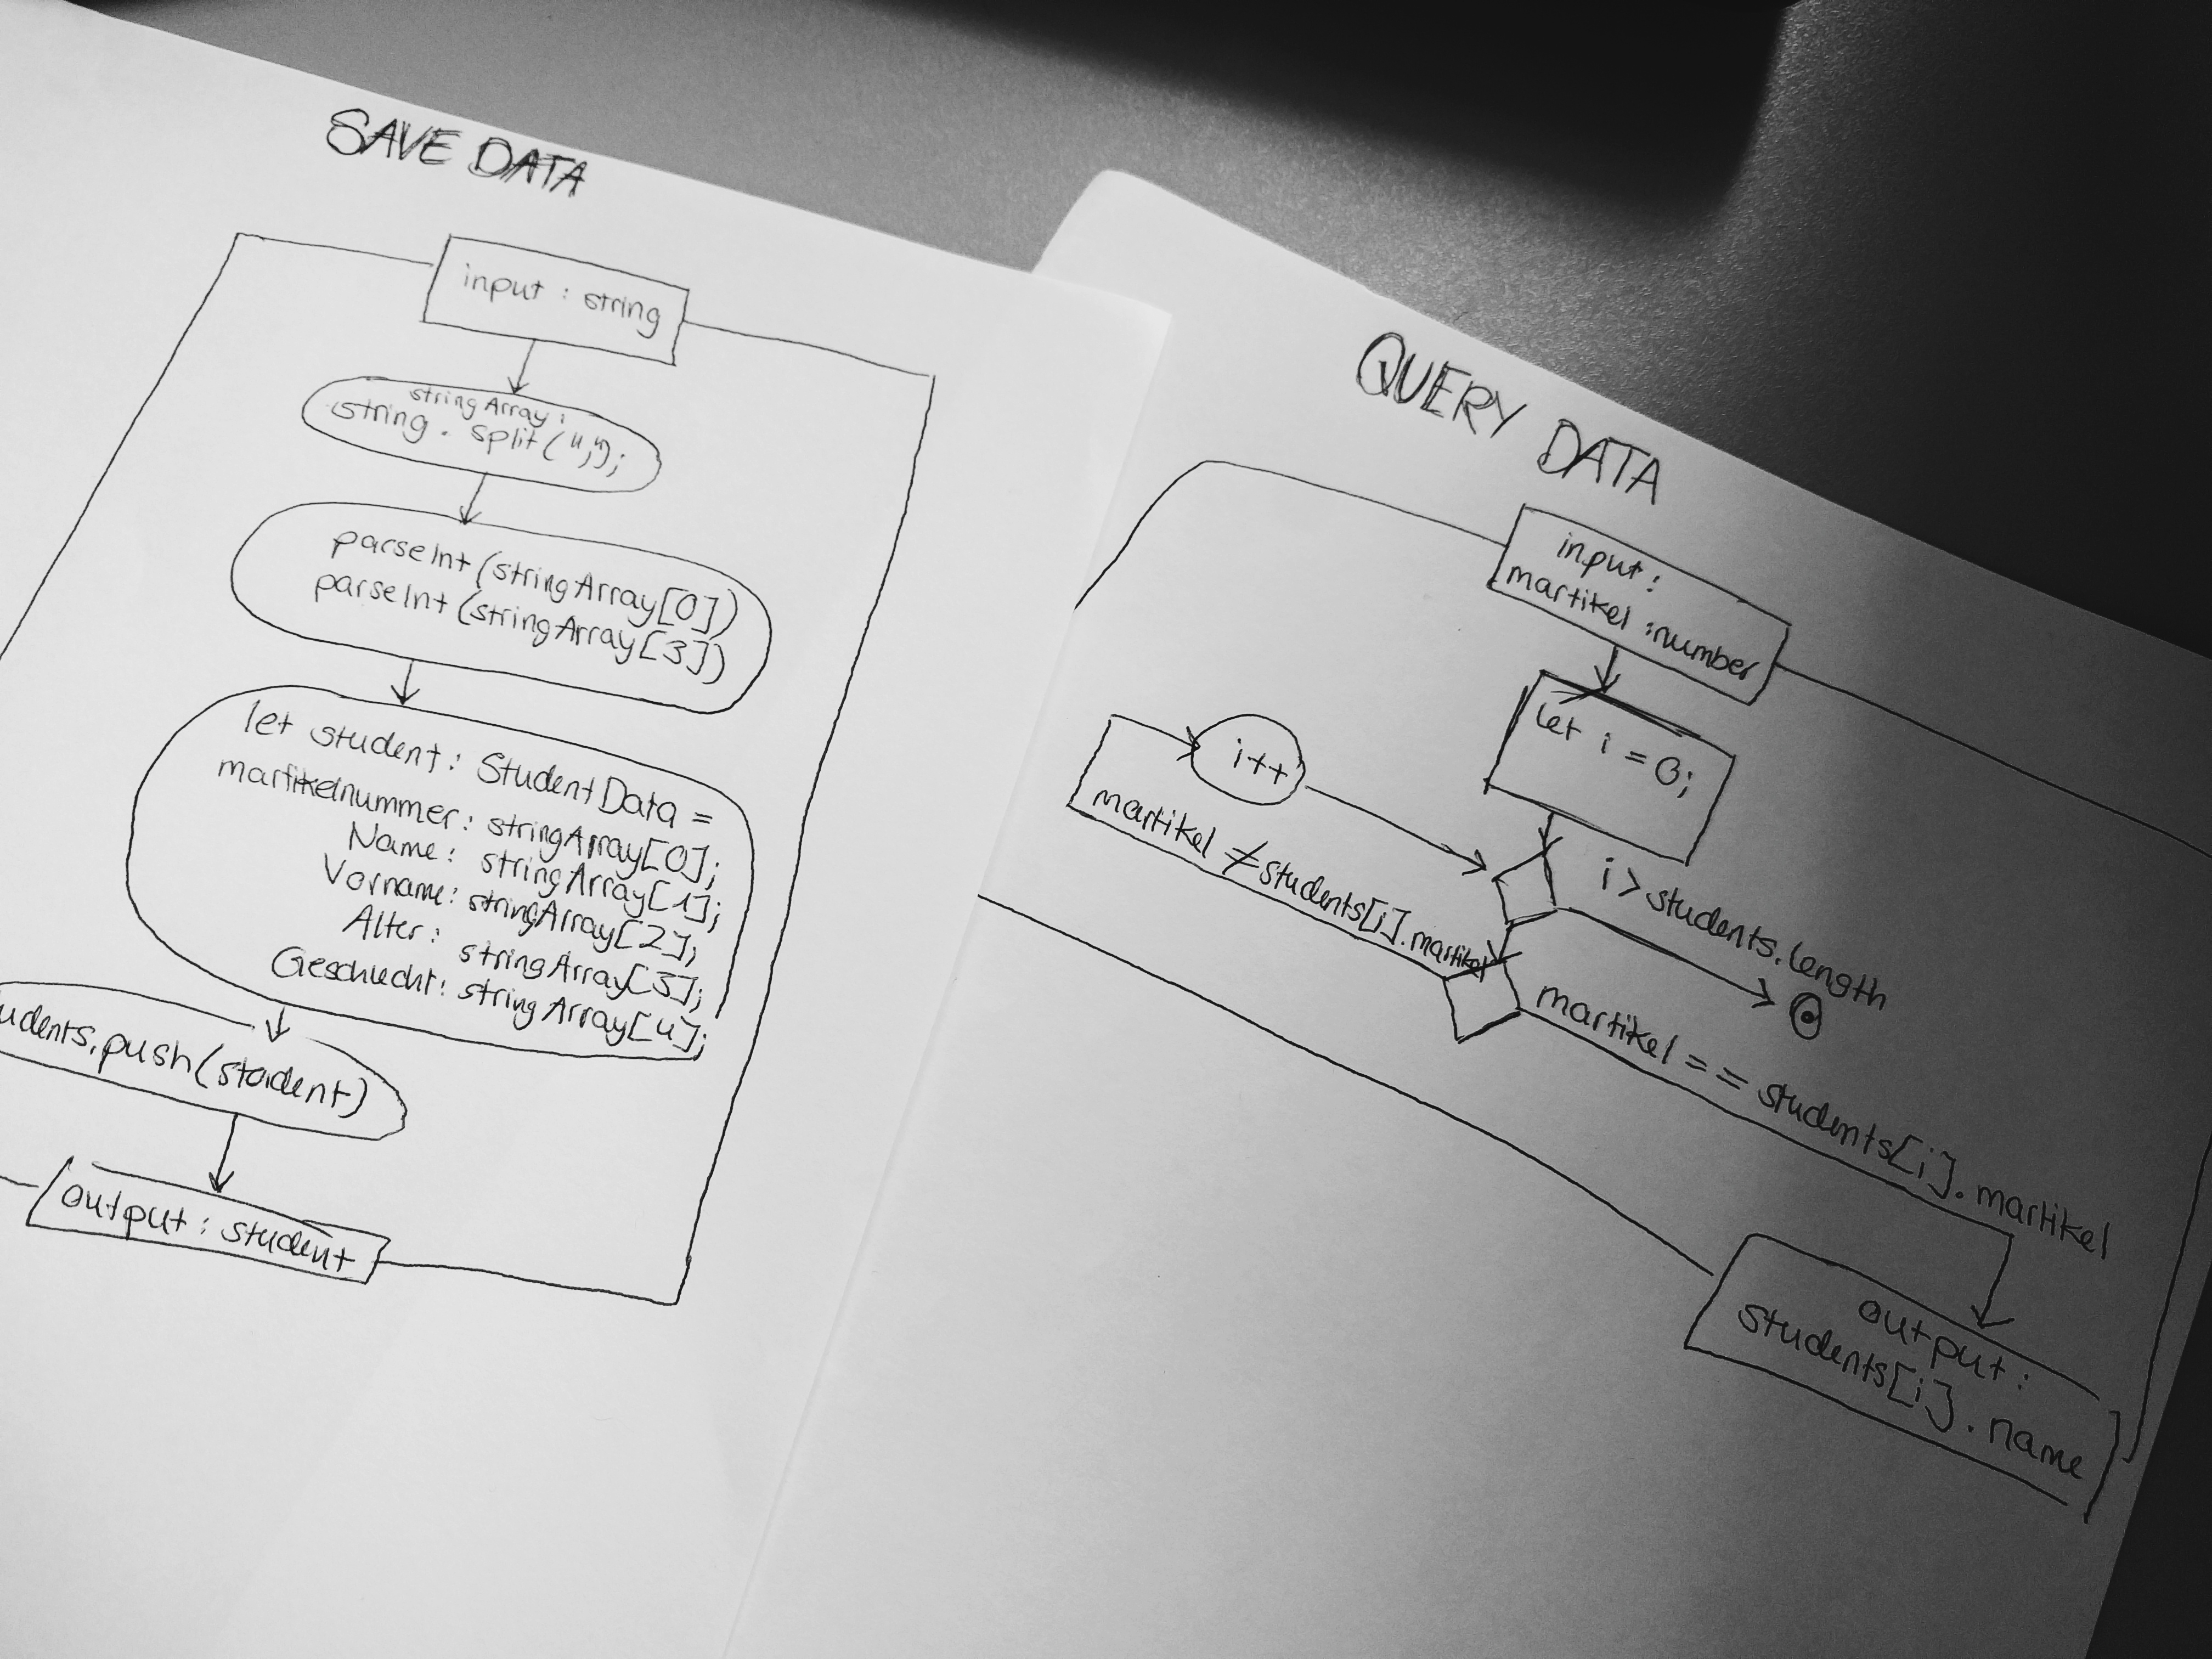 SAVE DATA
input : string
stringArray:
string. split(",");
parseInt (stringArray[0])
parseInt (stringArray[3])
let student: StudentData =
martikelnummer: stringArray[0];
Name: stringArray[1];
Vorname: stringArray[2];
Alter: stringArray[3];
Geschlecht: stringArray[4];
udents.push(student)
output : student
QUERY DATA
input :
martikel :number
let i = 0;
i++
i > students.length
martikel ≠ students[i].martikel
martikel == students[i].martikel
output :
students[i].name